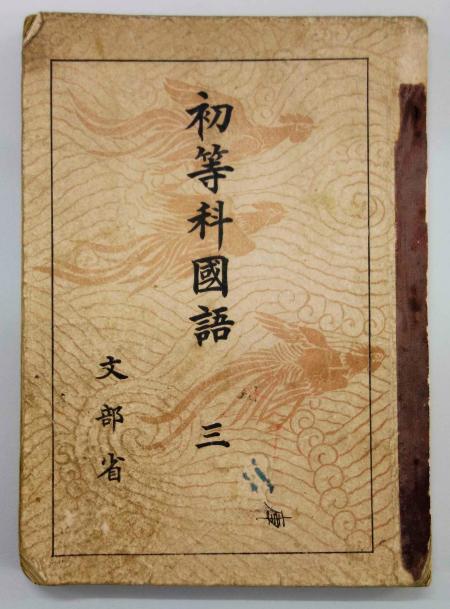 初等科國語 三
文部省
庫